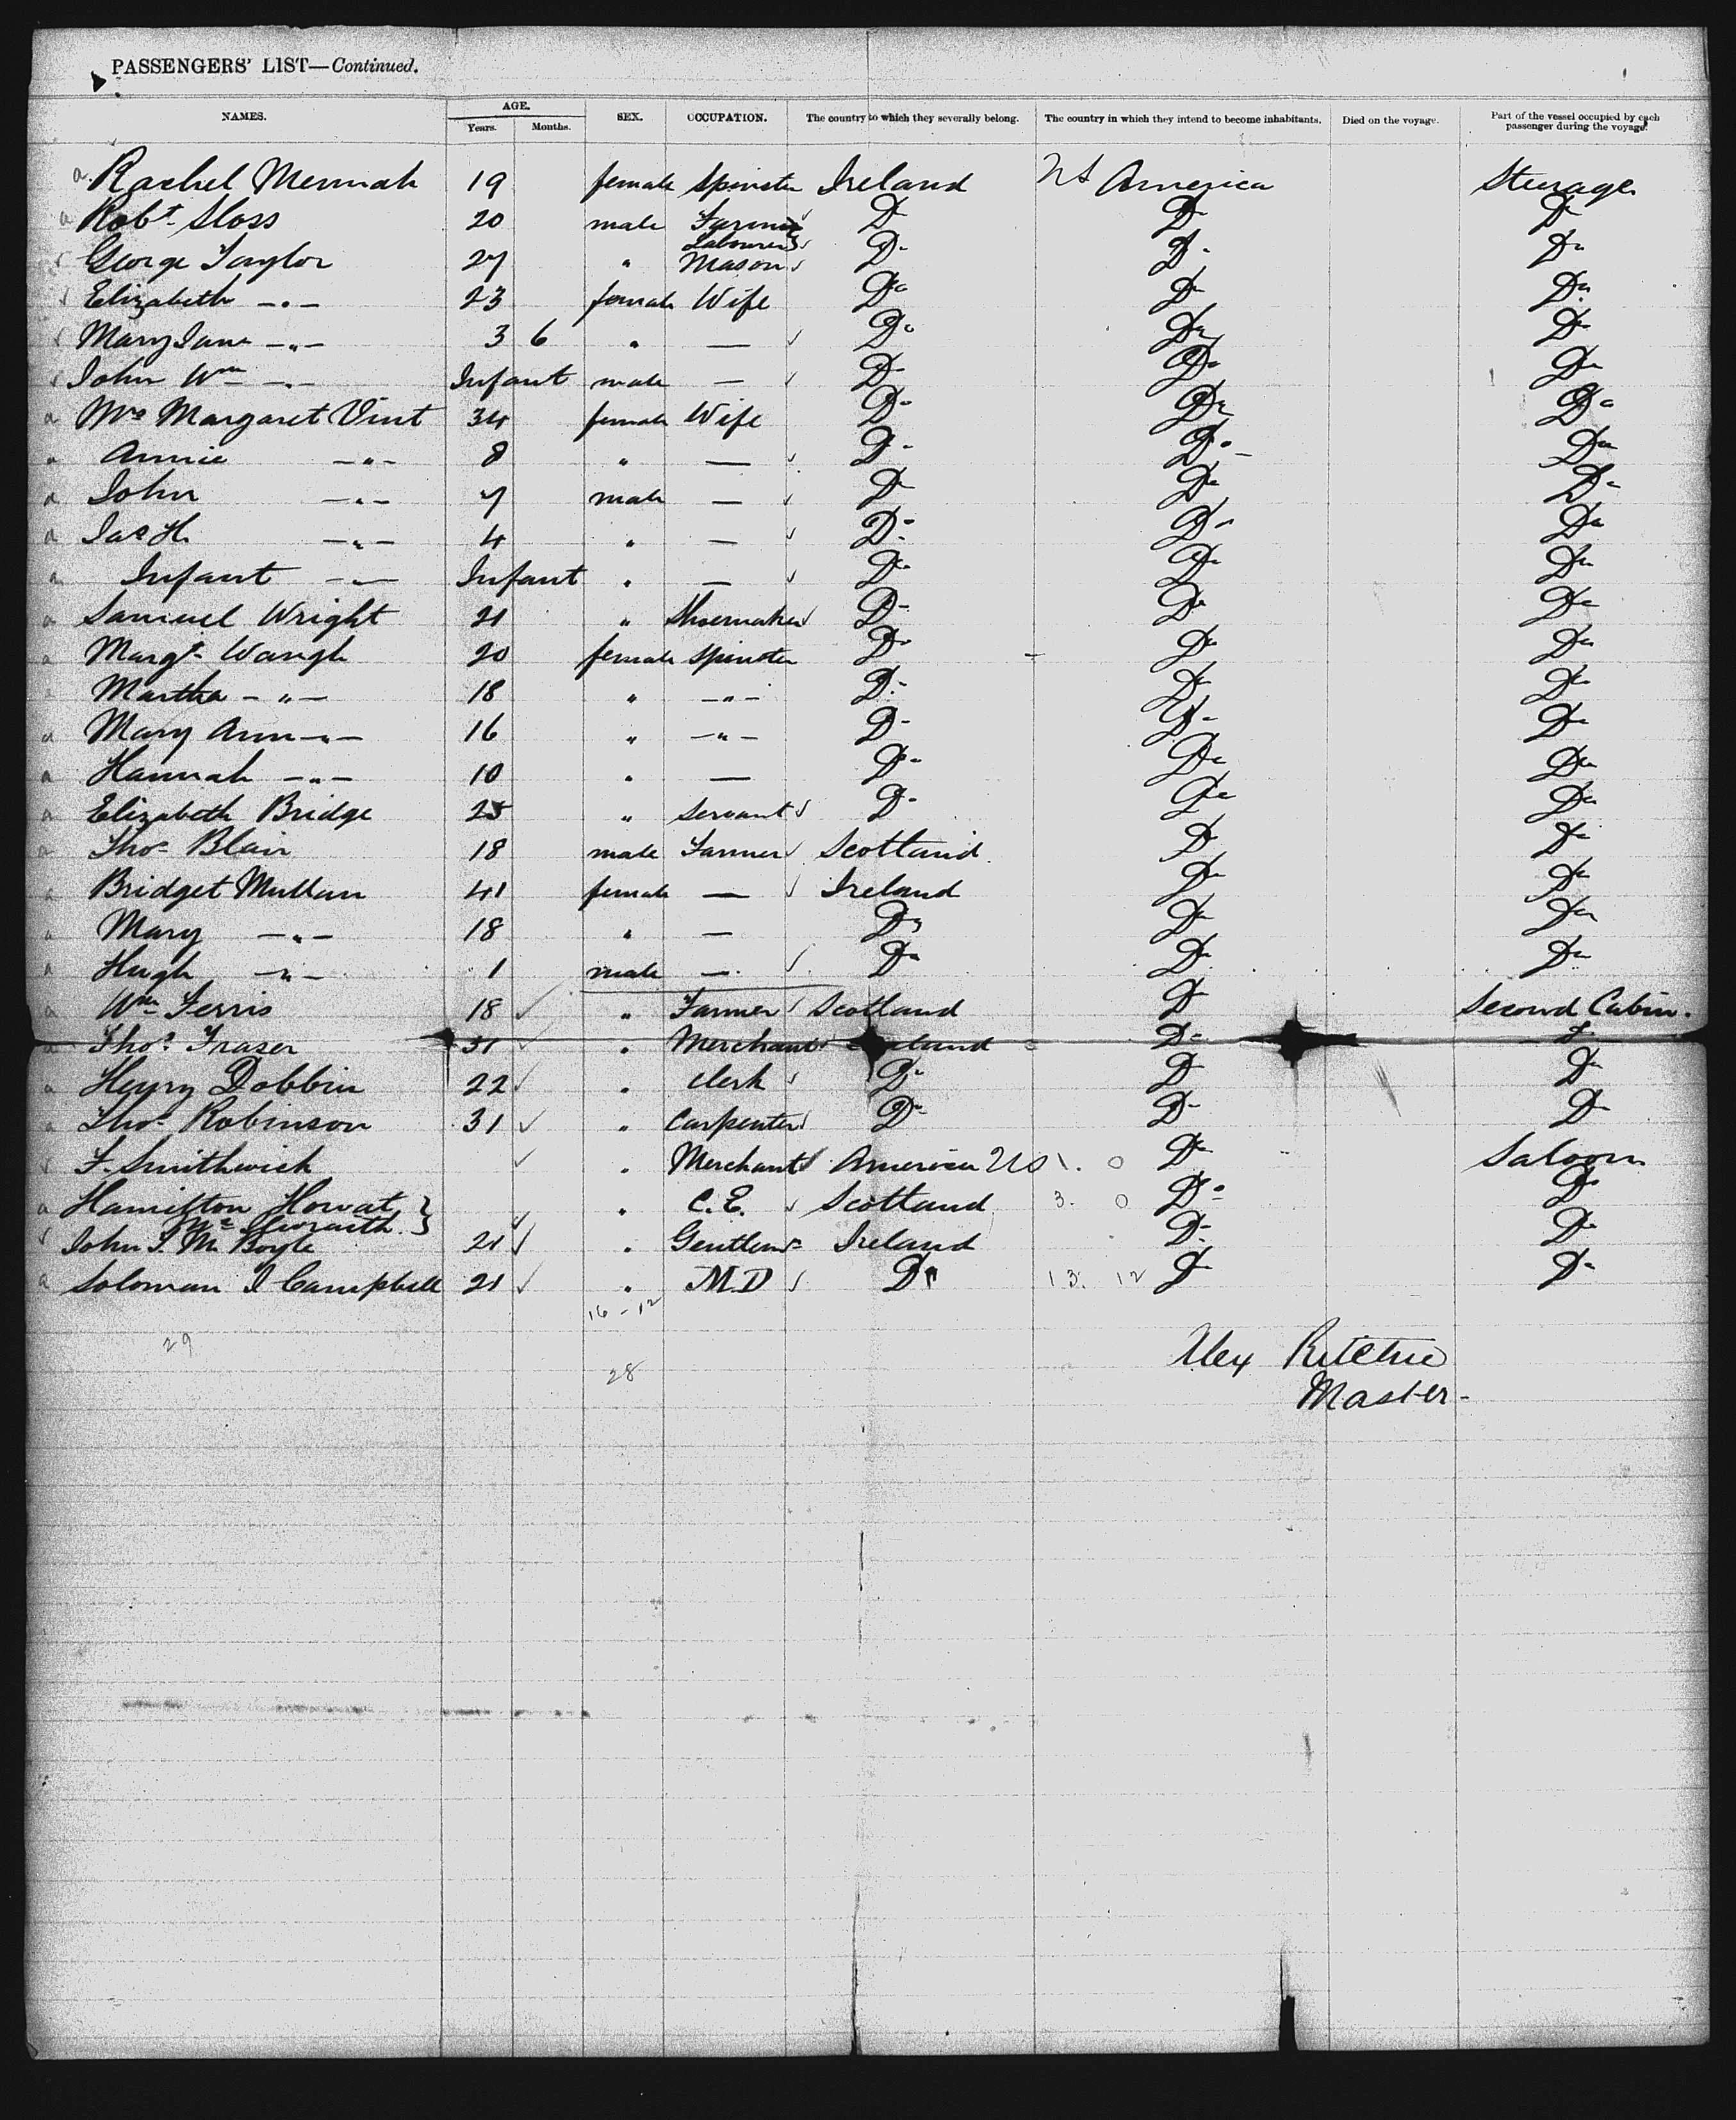 PASSENGERS' LIST—Continued.
NAMES. AGE. Years. Months. SEX. OCCUPATION. The country to which they severally belong. The country in which they intend to become inhabitants. Died on the voyage. Part of the vessel occupied by each passenger during the voyage.
a Rachel 19 female Spinster Ireland America Steerage
a Robt. Sloss 20 male Farmer Do Do Do
Labourer
George Taylor 27 " Mason Do Do Do
Elizabeth -"- 23 female Wife Do Do Do
Mary Jane -"- 3 6 " — Do Do Do
John Wm -"- Infant male — Do Do Do
a Mrs Margaret Vint 34 female Wife Do Do Do
a Annie -"- 8 " — Do Do Do
a John -"- 7 male — Do Do Do
a Jas H. -"- 4 " — Do Do Do
a Infant -"- Infant " — Do Do Do
a Samuel Wright 21 " Shoemaker Do Do Do
a Margt. Waugh 20 female Spinster Do Do Do
a Martha -"- 18 " -"- Do Do Do
a Mary Ann -"- 16 " -"- Do Do Do
a Hannah -"- 10 " — Do Do Do
a Elizabeth Bridge 25 " Servant Do Do Do
a Thos Blair 18 male Farmer Scotland Do Do
a Bridget Mullan 41 female — Ireland Do Do
a Mary -"- 18 " — Do Do Do
a Hugh -"- 1 male — Do Do Do
a Wm Ferris 18 " Farmer Scotland Do Second Cabin.
a Thos. Fraser 31 " Merchant Do Do
a Henry Dobbin 22 " Clerk Do Do Do
a Thos. Robinson 31 " Carpenter Do Do Do
F. Smithwick " Merchant America US 1. 0 Do Saloon
a Hamilton Howat } " C.E. Scotland 3. 0 Do Do
John S. Mc Boyle 21 " Gentleman Ireland Do Do
a Soloman J Campbell 21 " M.D Do 13. 12 Do Do
16 - 12
29
28
Alex Ritchie
Master